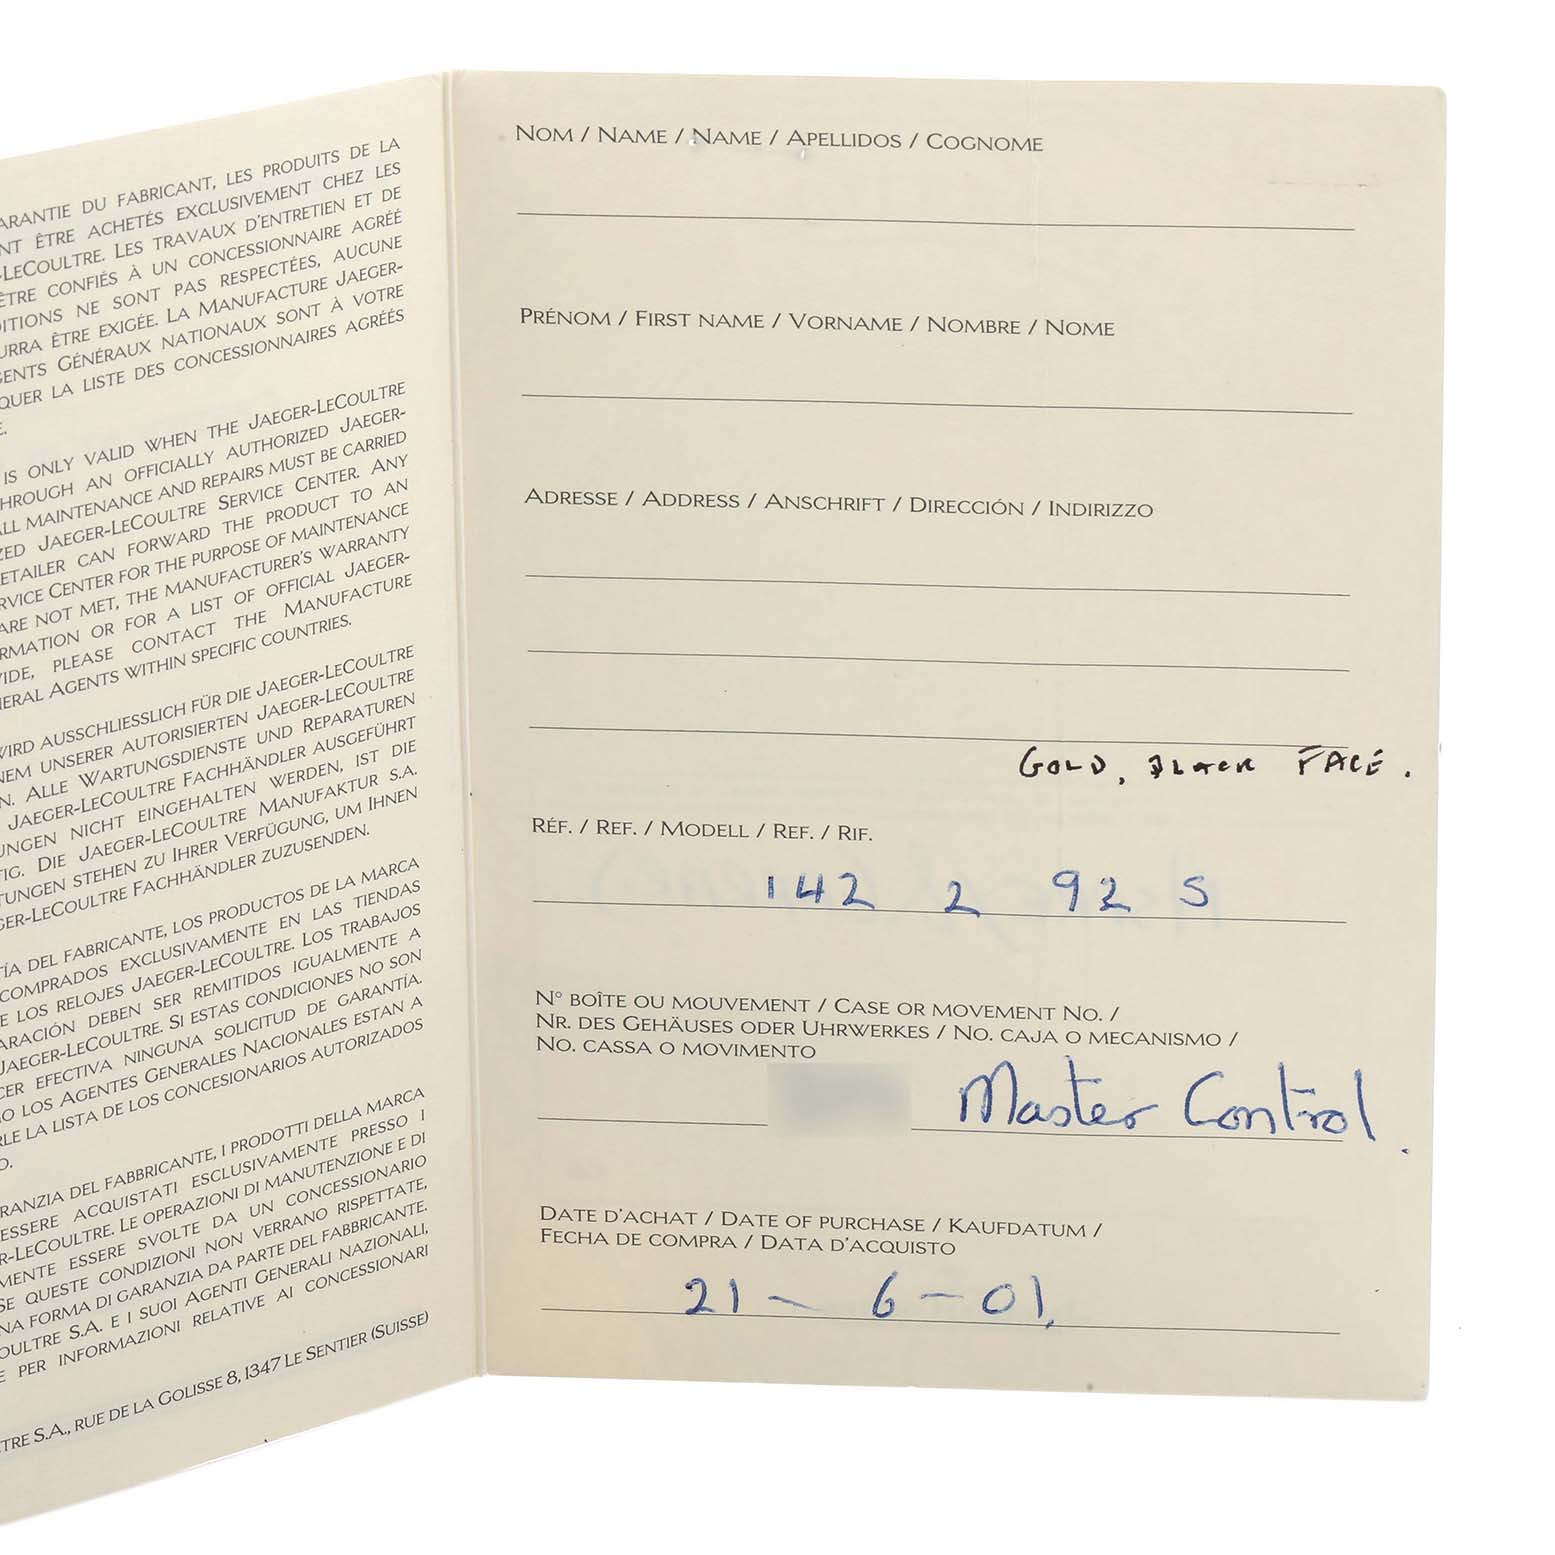 ARANTIE DU FABRICANT, LES PRODUITS DE LA
NT ÊTRE ACHETÉS EXCLUSIVEMENT CHEZ LES
-LECOULTRE. LES TRAVAUX D'ENTRETIEN ET DE
ÊTRE CONFIÉS À UN CONCESSIONNAIRE AGRÉÉ
DITIONS NE SONT PAS RESPECTÉES, AUCUNE
URRA ÊTRE EXIGÉE. LA MANUFACTURE JAEGER-
GENTS GÉNÉRAUX NATIONAUX SONT À VOTRE
QUER LA LISTE DES CONCESSIONNAIRES AGRÉÉS
E.
IS ONLY VALID WHEN THE JAEGER-LECOULTRE
HROUGH AN OFFICIALLY AUTHORIZED JAEGER-
ALL MAINTENANCE AND REPAIRS MUST BE CARRIED
ZED JAEGER-LECOULTRE SERVICE CENTER. ANY
ETAILER CAN FORWARD THE PRODUCT TO AN
RVICE CENTER FOR THE PURPOSE OF MAINTENANCE
ARE NOT MET, THE MANUFACTURER'S WARRANTY
RMATION OR FOR A LIST OF OFFICIAL JAEGER-
VIDE, PLEASE CONTACT THE MANUFACTURE
NERAL AGENTS WITHIN SPECIFIC COUNTRIES.
WIRD AUSSCHLIESSLICH FÜR DIE JAEGER-LECOULTRE
NEM UNSERER AUTORISIERTEN JAEGER-LECOULTRE
N. ALLE WARTUNGSDIENSTE UND REPARATUREN
JAEGER-LECOULTRE FACHHÄNDLER AUSGEFÜHRT
UNGEN NICHT EINGEHALTEN WERDEN, IST DIE
TIG. DIE JAEGER-LECOULTRE MANUFAKTUR S.A.
TUNGEN STEHEN ZU IHRER VERFÜGUNG, UM IHNEN
GER-LECOULTRE FACHHÄNDLER ZUZUSENDEN.
TÍA DEL FABRICANTE, LOS PRODUCTOS DE LA MARCA
COMPRADOS EXCLUSIVAMENTE EN LAS TIENDAS
E LOS RELOJES JAEGER-LECOULTRE. LOS TRABAJOS
ARACIÓN DEBEN SER REMITIDOS IGUALMENTE A
JAEGER-LECOULTRE. SI ESTAS CONDICIONES NO SON
CER EFECTIVA NINGUNA SOLICITUD DE GARANTÍA.
MO LOS AGENTES GENERALES NACIONALES ESTAN A
RLE LA LISTA DE LOS CONCESIONARIOS AUTORIZADOS
O.
RANZIA DEL FABBRICANTE, I PRODOTTI DELLA MARCA
ESSERE ACQUISTATI ESCLUSIVAMENTE PRESSO I
R-LECOULTRE. LE OPERAZIONI DI MANUTENZIONE E DI
MENTE ESSERE SVOLTE DA UN CONCESSIONARIO
SE QUESTE CONDIZIONI NON VERRANO RISPETTATE,
NA FORMA DI GARANZIA DA PARTE DEL FABBRICANTE.
OULTRE S.A. E I SUOI AGENTI GENERALI NAZIONALI,
E PER INFORMAZIONI RELATIVE AI CONCESSIONARI
TRE S.A., RUE DE LA GOLISSE 8, 1347 LE SENTIER (SUISSE)
NOM / NAME / NAME / APELLIDOS / COGNOME
PRÉNOM / FIRST NAME / VORNAME / NOMBRE / NOME
ADRESSE / ADDRESS / ANSCHRIFT / DIRECCIÓN / INDIRIZZO
GOLD, BLACK FACE.
RÉF. / REF. / MODELL / REF. / RIF.
142 2 92 S
N° BOÎTE OU MOUVEMENT / CASE OR MOVEMENT NO. /
NR. DES GEHÄUSES ODER UHRWERKES / NO. CAJA O MECANISMO /
NO. CASSA O MOVIMENTO
Master Control.
DATE D'ACHAT / DATE OF PURCHASE / KAUFDATUM /
FECHA DE COMPRA / DATA D'ACQUISTO
21 - 6 - 01.